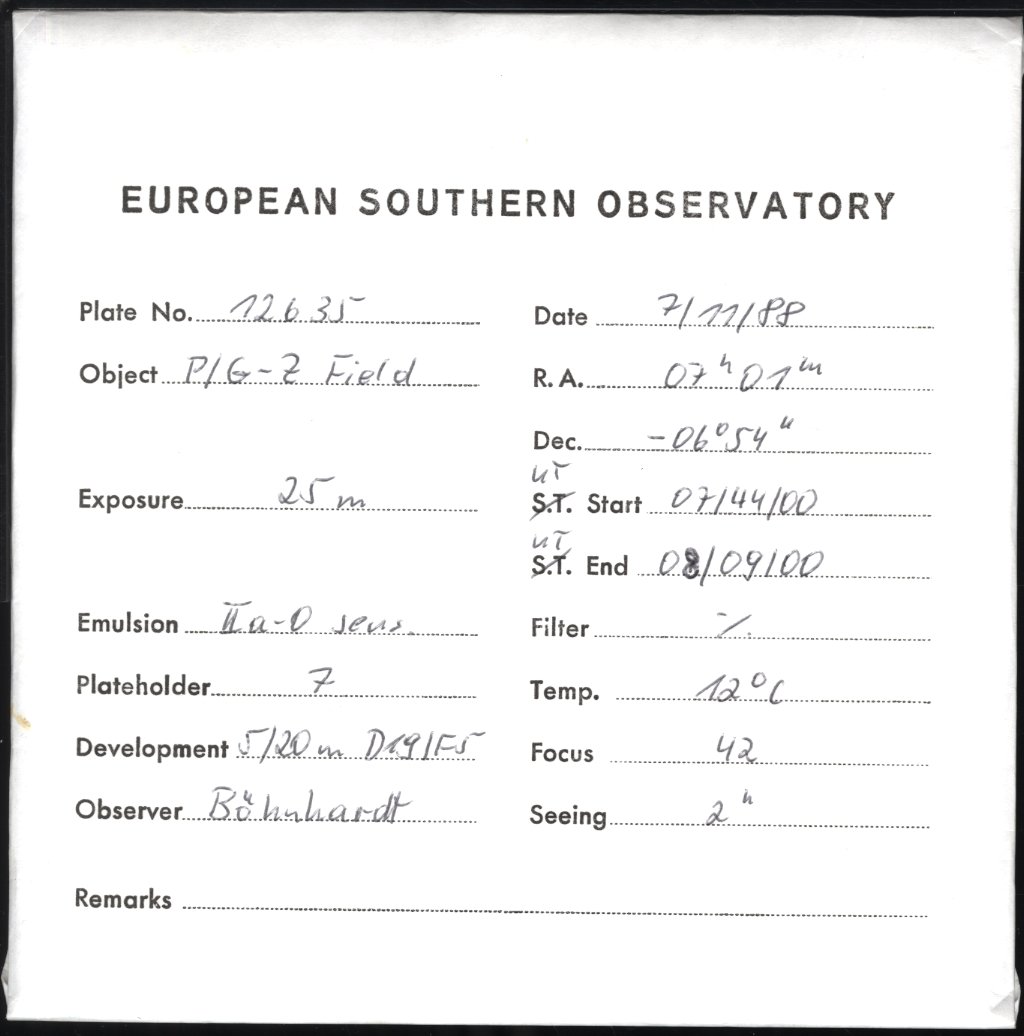 EUROPEAN SOUTHERN OBSERVATORY
Plate No. 12635 Date 7/11/88
Object P/G-Z Field R.A. 07h 01m
Dec. -06°54"
UT
Exposure 25m S.T. Start 07/44/00
UT
S.T. End 08/09/00
Emulsion IIa-O sens. Filter ⁒
Plateholder 7 Temp. 12°C
Development 5/20m D19/F5 Focus 42
Observer Böhnhardt Seeing 2"
Remarks